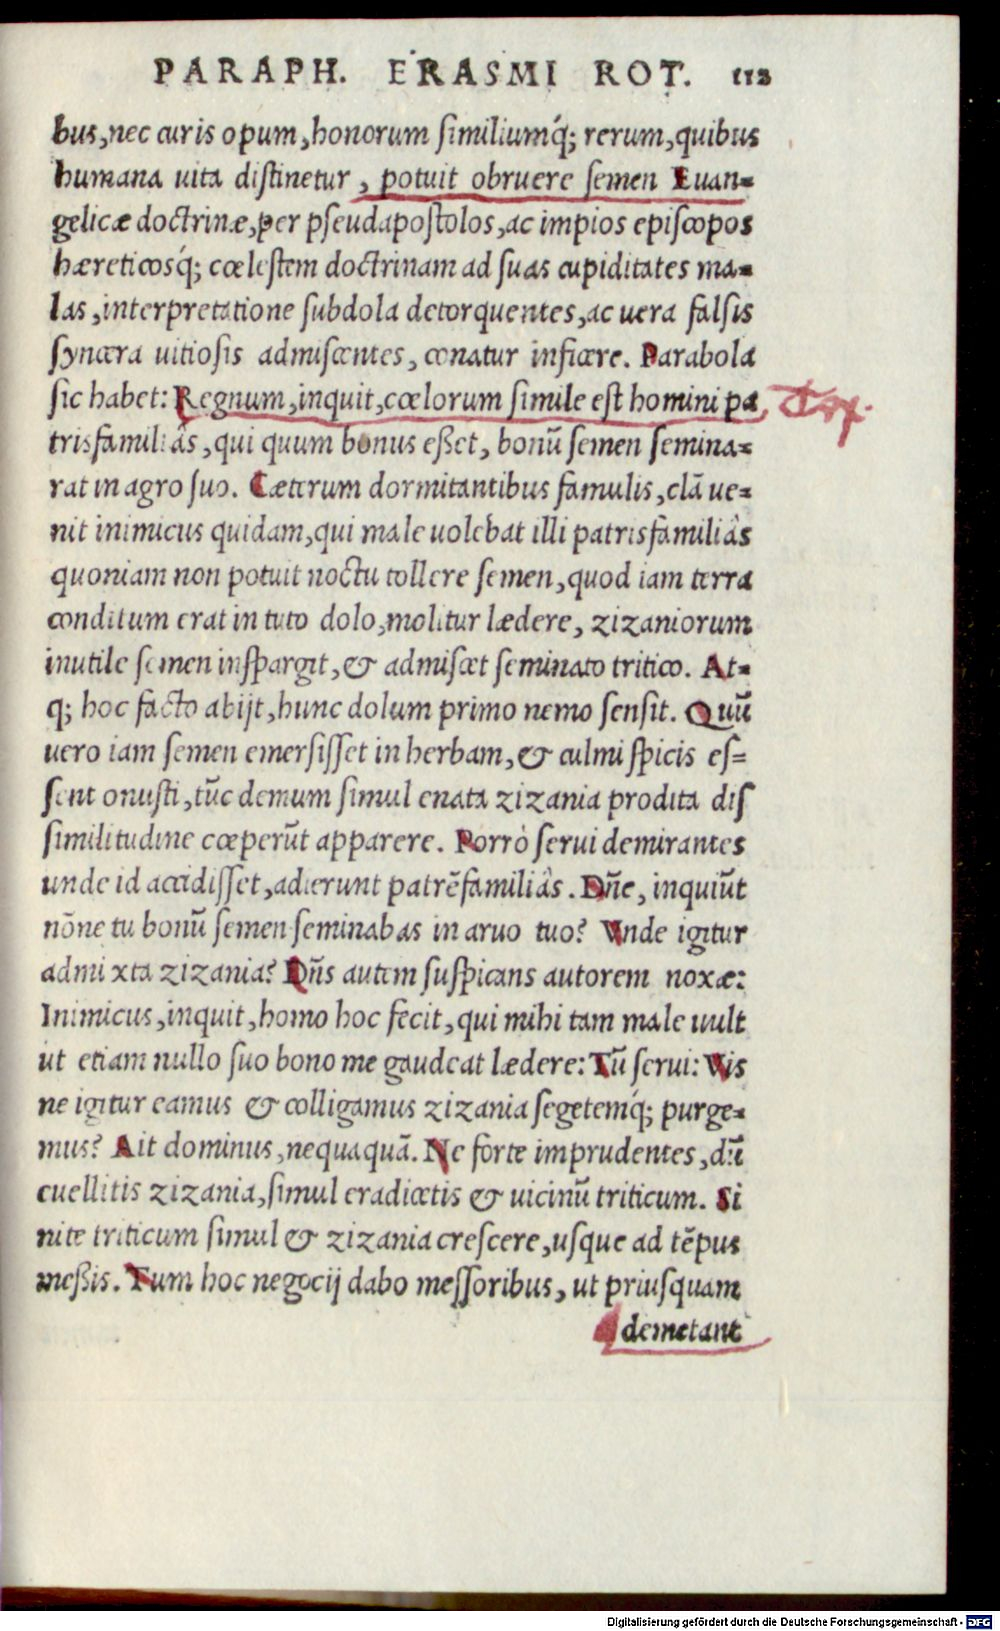 PARAPH. ERASMI ROT. 112
bus, nec curis opum, honorum similiumq́; rerum, quibus
humana uita distinetur, potuit obruere semen Euan-
gelicæ doctrinæ, per pseudapostolos, ac impios episcopos
hæreticosq́; cœlestem doctrinam ad suas cupiditates ma-
las, interpretatione subdola detorquentes, ac uera falsis
syncera uitiosis admiscentes, conatur inficere. Parabola
sic habet: Regnum, inquit, cœlorum simile est homini pa
trisfamiliâs, qui quum bonus eßet, bonū semen semina-
rat in agro suo. Cæterum dormitantibus famulis, clā ue-
nit inimicus quidam, qui male uolebat illi patrisfamiliâs
quoniam non potuit noctu tollere semen, quod iam terra
conditum erat in tuto dolo, molitur lædere, zizaniorum
inutile semen inspargit, & admiscet seminato tritico. At-
q; hoc facto abijt, hunc dolum primo nemo sensit. Quū
uero iam semen emersisset in herbam, & culmi spicis es-
sent onusti, tūc demum simul enata zizania prodita dis
similitudine cœperūt apparere. Porrò serui demirantes
unde id accidisset, adierunt patrēfamiliâs. Dñe, inquiūt
nōne tu bonū semen seminabas in aruo tuo? Vnde igitur
admixta zizania? Dñs autem suspicans autorem noxæ:
Inimicus, inquit, homo hoc fecit, qui mihi tam male uult
ut etiam nullo suo bono me gaudeat lædere: Tū serui: Vis
ne igitur eamus & colligamus zizania segetemq́; purge-
mus? Ait dominus, nequaquā. Ne forte imprudentes, dū
euellitis zizania, simul eradicetis & uicinū triticum. Si
nite triticum simul & zizania crescere, usque ad tēpus
meßis. Tum hoc negocij dabo messoribus, ut priusquam
demetant
Digitalisierung gefördert durch die Deutsche Forschungsgemeinschaft - DFG